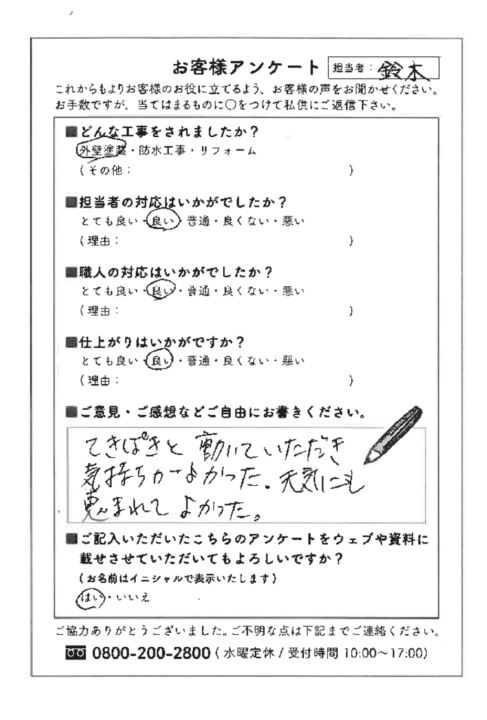 お客様アンケート 担当者：鈴木
これからもよりお客様のお役に立てるよう、お客様の声をお聞かせください。
お手数ですが、当てはまるものに○をつけて私供にご返信下さい。
■どんな工事をされましたか？
外壁塗装・防水工事・リフォーム
（その他：　）
■担当者の対応はいかがでしたか？
とても良い・良い・普通・良くない・悪い
（理由：　）
■職人の対応はいかがでしたか？
とても良い・良い・普通・良くない・悪い
（理由：　）
■仕上がりはいかがですか？
とても良い・良い・普通・良くない・悪い
（理由：　）
■ご意見・ご感想などご自由にお書きください。
てきぱきと動いていただき
気持ちがよかった。天気にも
恵まれてよかった。
■ご記入いただいたこちらのアンケートをウェブや資料に
載せさせていただいてもよろしいですか？
（お名前はイニシャルで表示いたします）
はい・いいえ
ご協力ありがとうございました。ご不明な点は下記までご連絡ください。
0800-200-2800（水曜定休/受付時間 10:00～17:00）